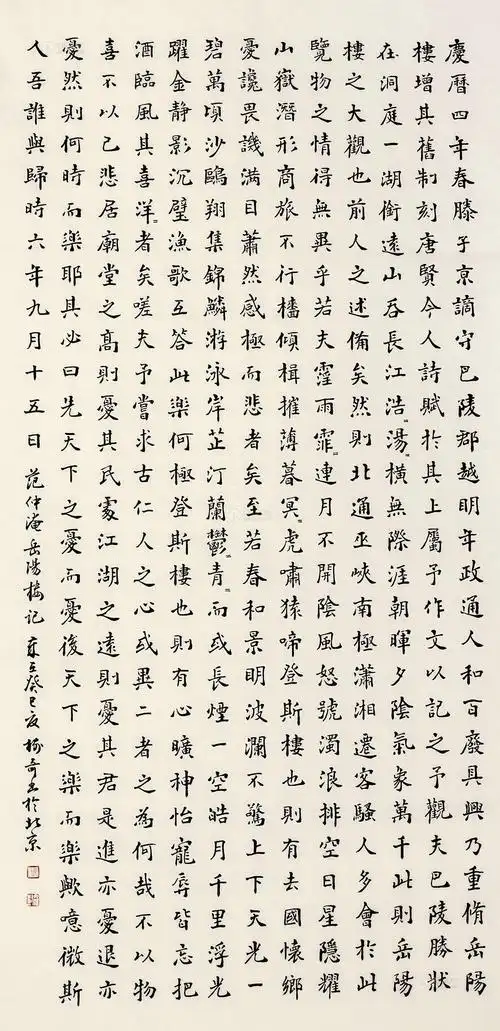 慶曆四年春滕子京謫守巴陵郡越明年政通人和百廢具興乃重脩岳陽
樓增其舊制刻唐賢今人詩賦於其上屬予作文以記之予觀夫巴陵勝狀
在洞庭一湖銜遠山吞長江浩〻湯〻橫無際涯朝暉夕陰氣象萬千此則岳陽
樓之大觀也前人之述備矣然則北通巫峽南極瀟湘遷客騷人多會於此
覽物之情得無異乎若夫霪雨霏〻連月不開陰風怒號濁浪排空日星隱耀
山嶽潛形商旅不行檣傾楫摧薄暮冥〻虎嘯猿啼登斯樓也則有去國懷鄉
憂讒畏譏滿目蕭然感極而悲者矣至若春和景明波瀾不驚上下天光一
碧萬頃沙鷗翔集錦鱗游泳岸芷汀蘭鬱〻青〻而或長煙一空皓月千里浮光
躍金靜影沉璧漁歌互答此樂何極登斯樓也則有心曠神怡寵辱皆忘把
酒臨風其喜洋〻者矣嗟夫予嘗求古仁人之心或異二者之為何哉不以物
喜不以己悲居廟堂之高則憂其民處江湖之遠則憂其君是進亦憂退亦
憂然則何時而樂耶其必曰先天下之憂而憂後天下之樂而樂歟噫微斯
人吾誰與歸時六年九月十五日 范仲淹岳陽樓記 癸巳 於北京